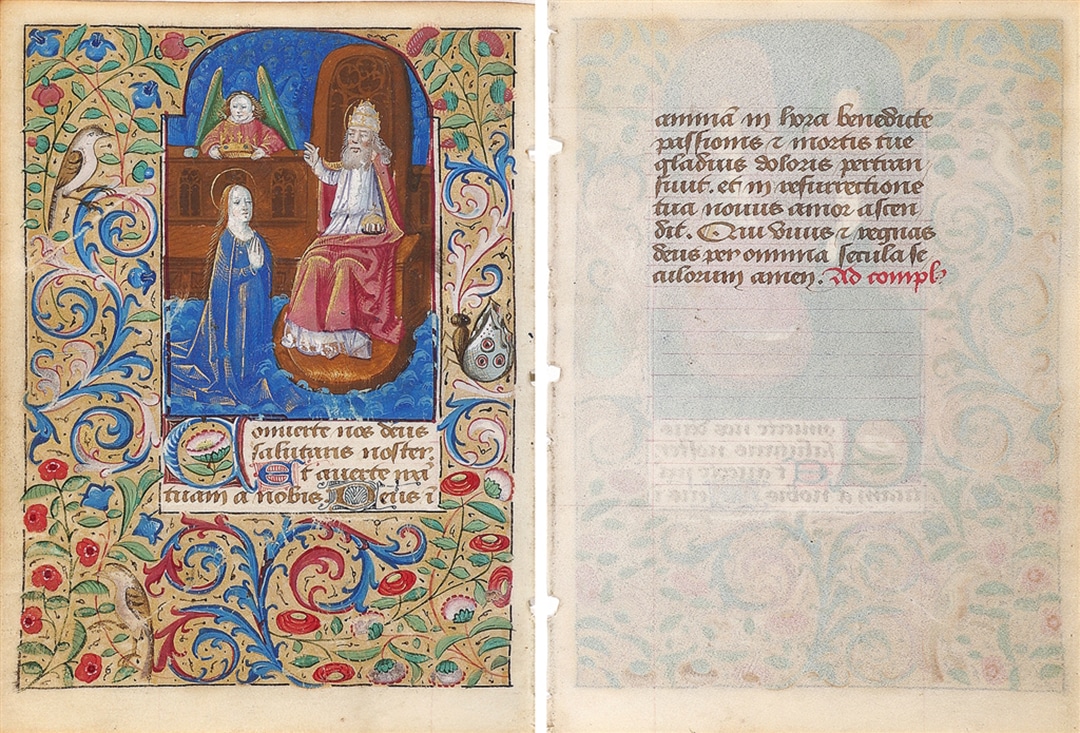 Conuerte nos deus
salutaris noster.
Et auerte irā
tuam a nobis. Deus ī
animā in hora benedicte
passionis ⁊ mortis tue
gladius doloris pertran
siuit. et in resurrectione
tua nouus amor ascen
dit. Qui viuis ⁊ regnas
deus per omnia secula se
culorum amen. Ad compl̓